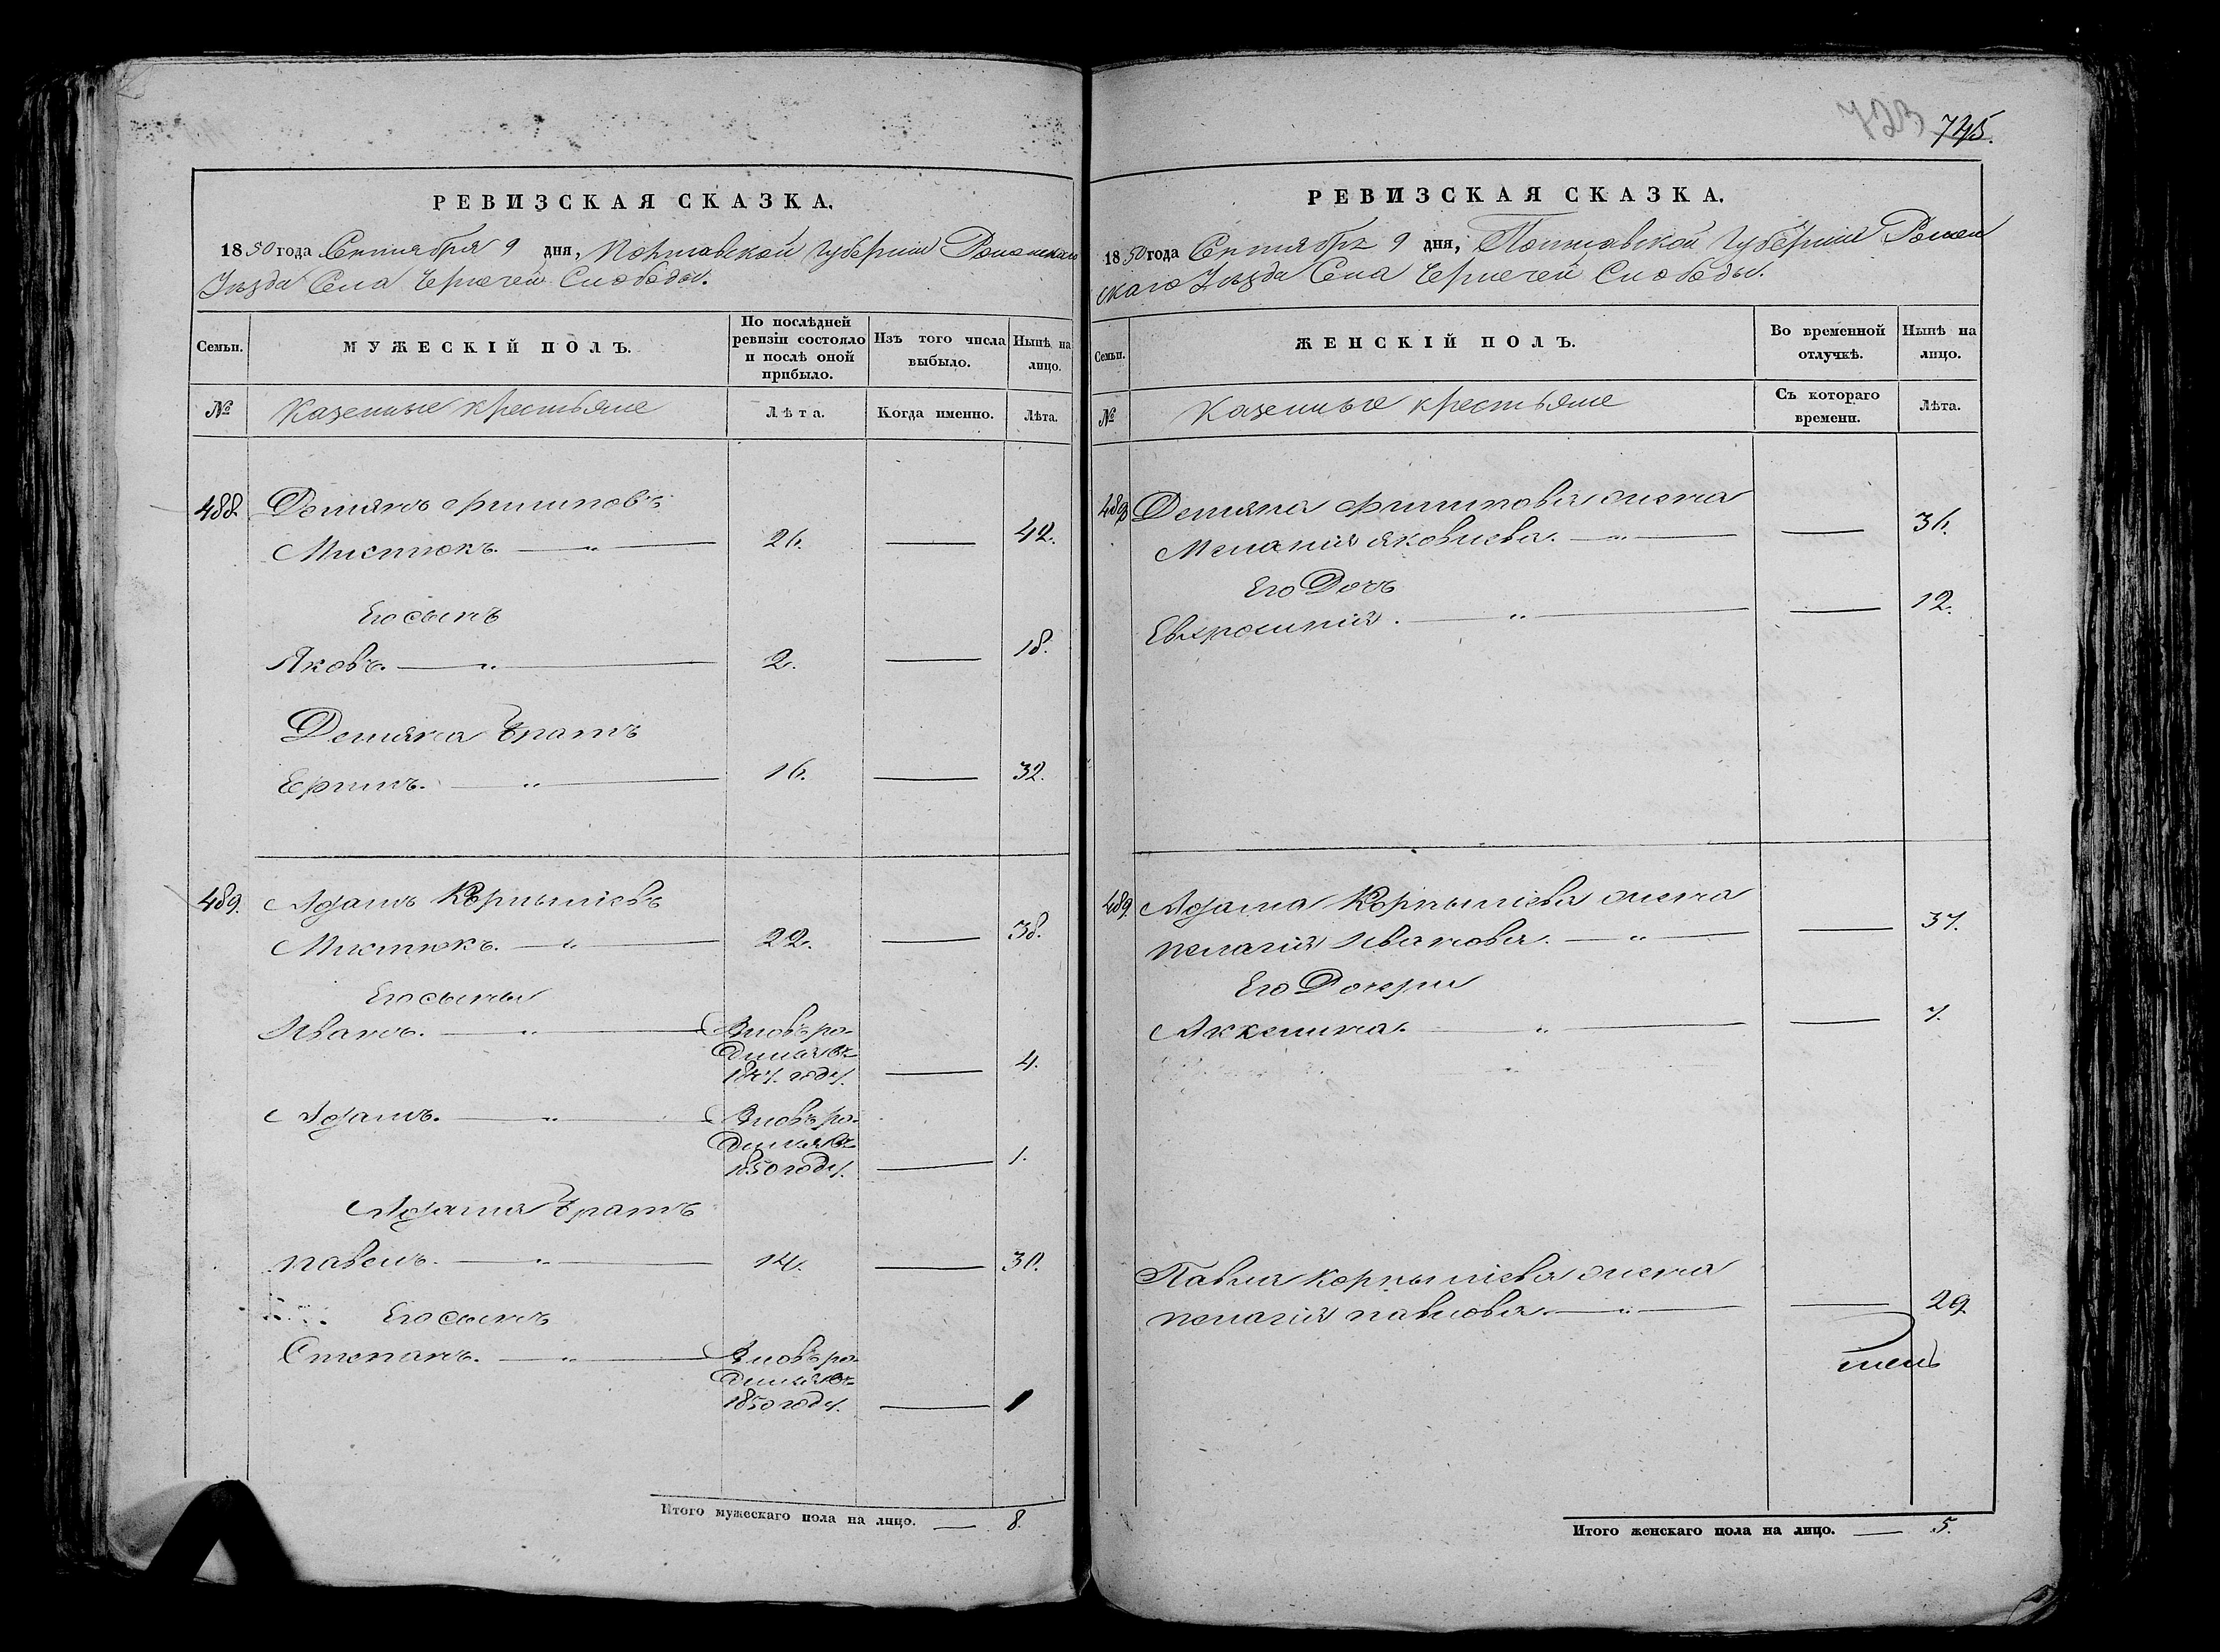 723 745.
РЕВИЗСКАЯ СКАЗКА.
1850 года Сентября 9 дня, Полтавской Губернии Роменскаго
Уезда Села Чернечей Слободы.
Семьи. МУЖЕСКІЙ ПОЛЪ. По послѣдней ревизіи состояло и послѣ оной прибыло. Изъ того числа выбыло. Нынѣ на лицо.
№ Казенные крестьяне Лѣта. Когда именно. Лѣта.
488. Демянъ Филиповъ
Мистюкъ. — „ — 26. — 42.
Его сынъ
Яковъ. — „ — 2. — 18.
Демяна братъ
Ефимъ. — „ — 16. — 32.
489. Адамъ Корныліевъ
Мистюкъ. — „ — 22. — 38.
Его сыны
Иванъ. — „ — Вновь ро-
дился въ
1847. году. — 4.
Адамъ. — „ — Вновь ро-
дился въ
1850 году. — 1.
Адама братъ
Павелъ. — „ — 14. — 30.
Его сынъ
Степанъ. — „ — Вновь ро-
дился въ
1850 году. — 1
Итого мужескаго пола на лицо. — 8.
РЕВИЗСКАЯ СКАЗКА.
1850 года Сентября 9 дня, Полтавской Губернии Ромен
скаго Уезда Села Чернечей Слободы.
Семьи. ЖЕНСКІЙ ПОЛЪ. Во временной отлучкѣ. Нынѣ на лицо.
№ Казенные крестьяне Съ котораго времени. Лѣта.
488 Демяна Филипова жена
Меланія Яковлева. — „ — — 36.
Его Дочь
Евхросинія. — „ — — 12.
489. Адама Корныліева жена
Пелагія Иванова. — „ — — 37.
Его Дочери
Акхелина. — „ — — 7.
Павла Корныліева жена
Пелагія Павлова — „ — — 29
Итого женскаго пола на лицо. — 5.